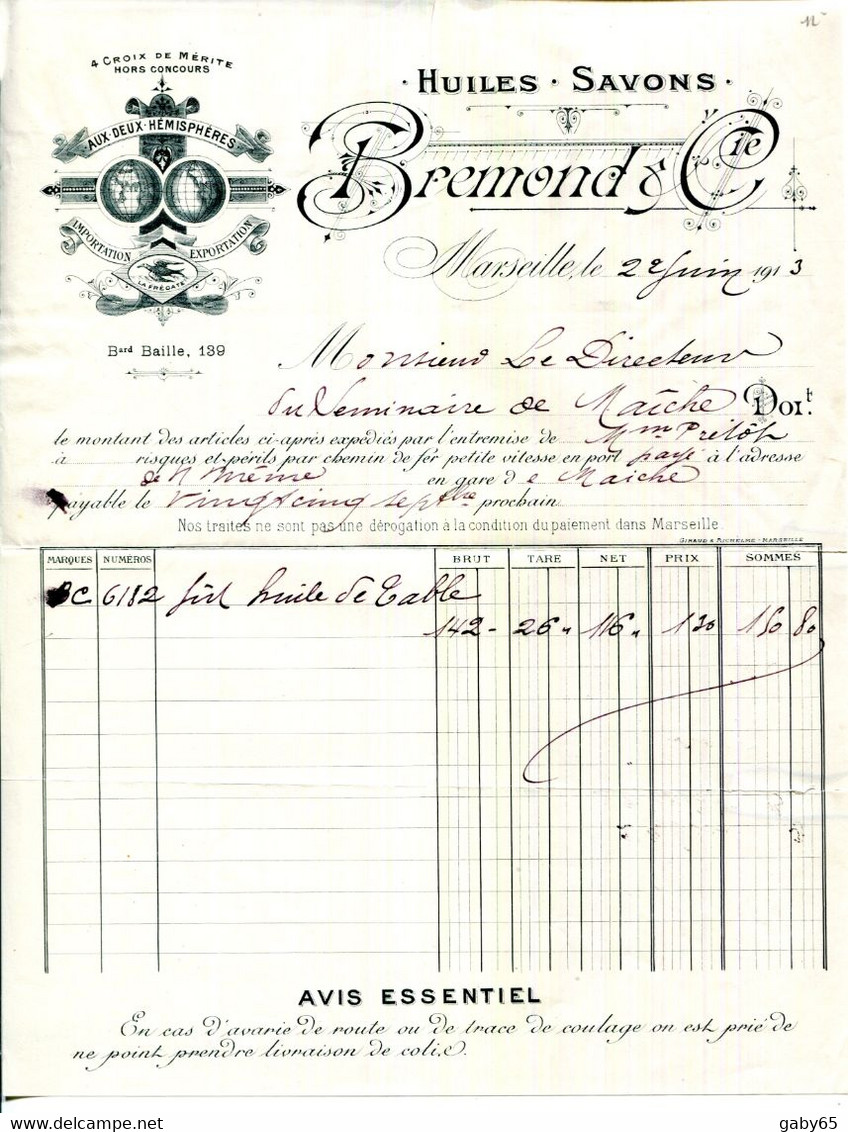 4 CROIX DE MÉRITE
HORS CONCOURS
AUX DEUX HÉMISPHÈRES
IMPORTATION EXPORTATION
LA FRÉGATE
Bard Baille, 139
· HUILES · SAVONS ·
Bremond & Cie
Marseille, le 2 Juin 1913
Monsieur Le Directeur
du Seminaire de Maîche DOIt
le montant des articles ci-après expédiés par l'entremise de Mm Prelôt
à risques et périls par chemin de fer petite vitesse en port payé à l'adresse
de même en gare de Maiche
payable le Vingt cinq septbre prochain
Nos traites ne sont pas une dérogation à la condition du paiement dans Marseille
GIRAUD & RICHELME - MARSEILLE
MARQUES NUMÉROS BRUT TARE NET PRIX SOMMES
BC 6182 fût huile de Table
142 - 26 " 116 " 1 30 150 80
AVIS ESSENTIEL
En cas d'avarie de route ou de trace de coulage on est prié de
ne point prendre livraison de colis.
gaby65